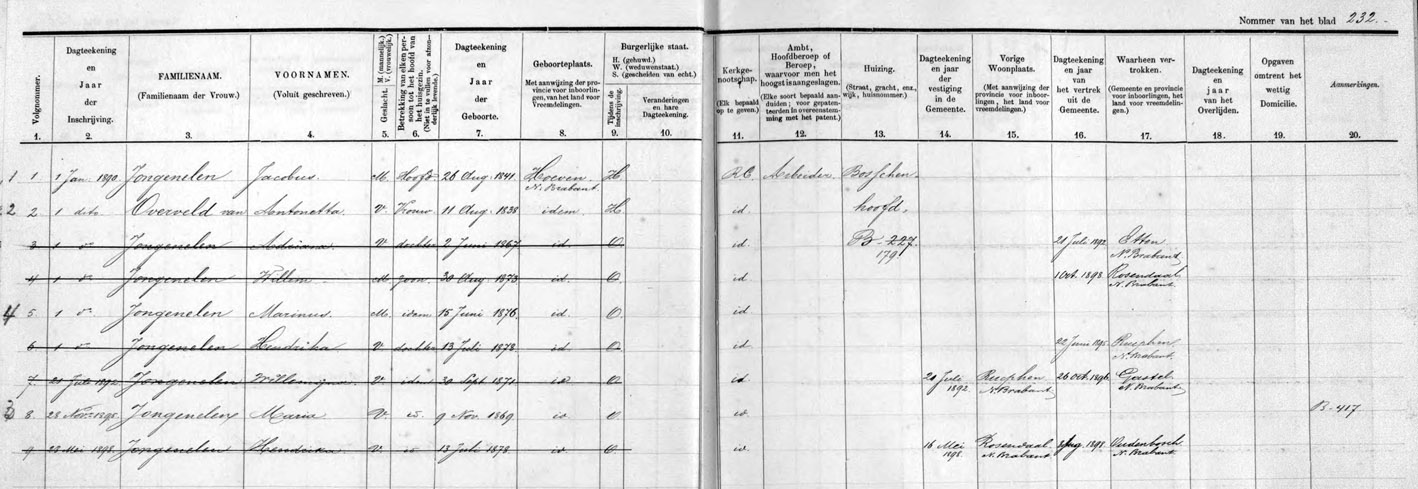 Nommer van het blad 232.
Volgnommer. Dagteekening en Jaar der Inschrijving. FAMILIENAAM. (Familienaam der Vrouw.) VOORNAMEN. (Voluit geschreven.) Geslacht. M. (mannelijk.) V. (vrouwelijk.) Betrekking van elken persoon tot het hoofd van het huisgezin. (Niet in te vullen voor afzonderlijk levende.) Dagteekening en Jaar der Geboorte. Geboorteplaats. Met aanwijzing der provincie voor inboorlingen, van het land voor Vreemdelingen. Burgerlijke staat. H. (gehuwd.) W. (weduwenstaat.) S. (gescheiden van echt.) Tijdens de inschrijving. Veranderingen en hare Dagteekening. Kerkgenootschap. (Elk bepaald op te geven.) Ambt, Hoofdberoep of Beroep, waarvoor men het hoogst is aangeslagen. (Elke soort bepaald aanduiden; voor gepatenteerden in overeenstemming met het patent.) Huizing. (Straat, gracht, enz., wijk, huisnommer.) Dagteekening en jaar der vestiging in de Gemeente. Vorige Woonplaats. (Met aanwijzing der provincie voor inboorlingen, het land voor vreemdelingen.) Dagteekening en jaar van het vertrek uit de Gemeente. Waarheen vertrokken. (Gemeente en provincie voor inboorlingen, het land voor vreemdelingen.) Dagteekening en jaar van het Overlijden. Opgaven omtrent het wettig Domicilie. Aanmerkingen.
1. 2. 3. 4. 5. 6. 7. 8. 9. 10. 11. 12. 13. 14. 15. 16. 17. 18. 19. 20.
1 1 1 Jan. 1890. Jongenelen Jacobus. M. Hoofd 26 Aug. 1841. Hoeven N. Brabant. H R.C. Arbeider Bosschen
2 2 1 dito Overveld van Antonetta V. Vrouw 11 Aug. 1838 idem H id. hoofd.
3 1 d° Jongenelen Adriana V. dochter 2 Juni 1867 id O id. B-227. 179. 21 Juli 1892 Etten N. Brabant
4 1 d° Jongenelen Willem M. zoon 30 Aug. 1873 id. O. id 1 Oct. 1893. Rosendaal N. Brabant
4 5 1 d° Jongenelen Marinus M. idem 15 Juni 1876 id. O. id
6 1 d° Jongenelen Hendrika V. dochter 13 Juli 1878. id O id. 22 Juni 1895 Rucphen N. Brabant.
7. 21 Juli 1892 Jongenelen V. idem 30 Sept 1871 id O id 21 Juli 1892. Rucphen N. Brabant 26 Oct. 1896 Gastel N. Brabant
3 8 28 Nov. 1895. Jongenelen Maria V id. 9 Nov. 1869 id O id B-417
9 23 Mei 1898 Jongenelen Hendrika V. id 13 Juli 1878. id O id. 16 Mei 1898. Rosendaal N. Brabant Aug. 1898. Oudenbosch N. Brabant